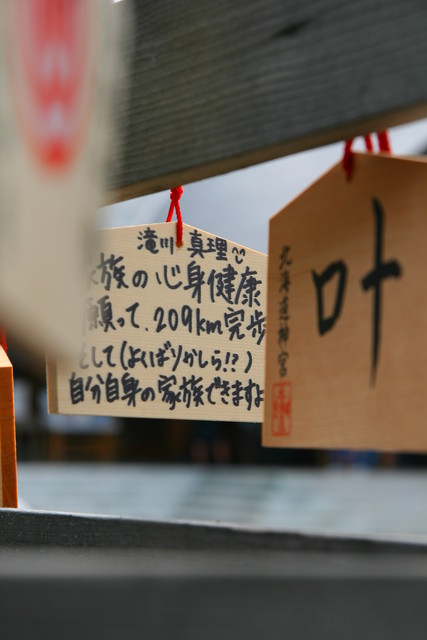 滝川 真理
家族の心身健康
願って、209km完歩
として(よくばりかしら!?)
自分自身の家族できますよ
叶
北海道神宮